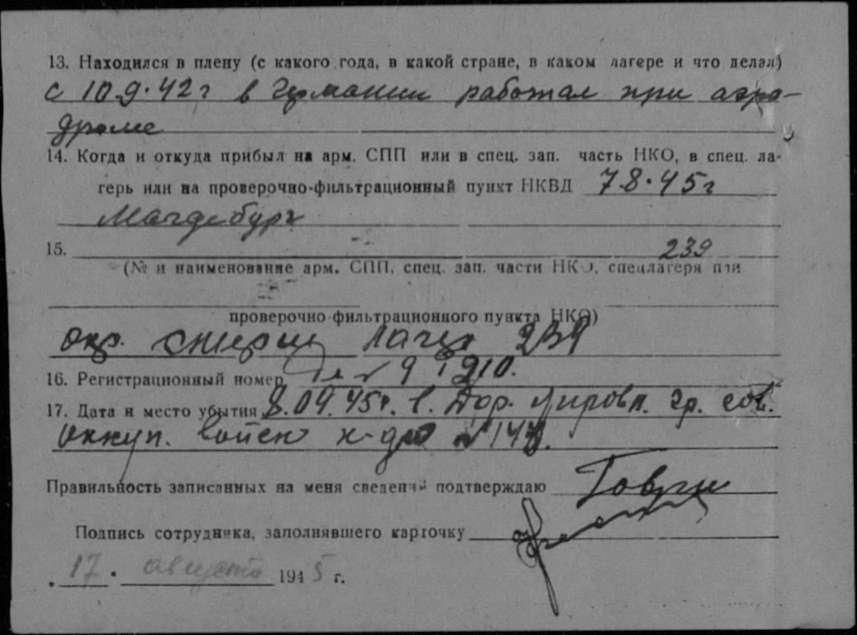 13. Находился в плену (с какого года, в какой стране, в каком лагере и что делал)
с 10.9.42 г в Германии работал при аэро-
дроме
14. Когда и откуда прибыл на арм. СПП или в спец. зап. часть НКО, в спец. ла-
герь или на проверочно-фильтрационный пункт НКВД 7.8.45 г
Магдебург
15. 239
(№ и наименование арм. СПП, спец. зап. части НКО, спецлагеря или
проверочно-фильтрационного пункта НКО)
окр. смерш лагерь 239
16. Регистрационный номер
17. Дата и место убытия 8.09.45г. в. гр. сов.
оккуп. войск №
Правильность записанных на меня сведений подтверждаю
Подпись сотрудника, заполнявшего карточку
„17“ августа 1945 г.